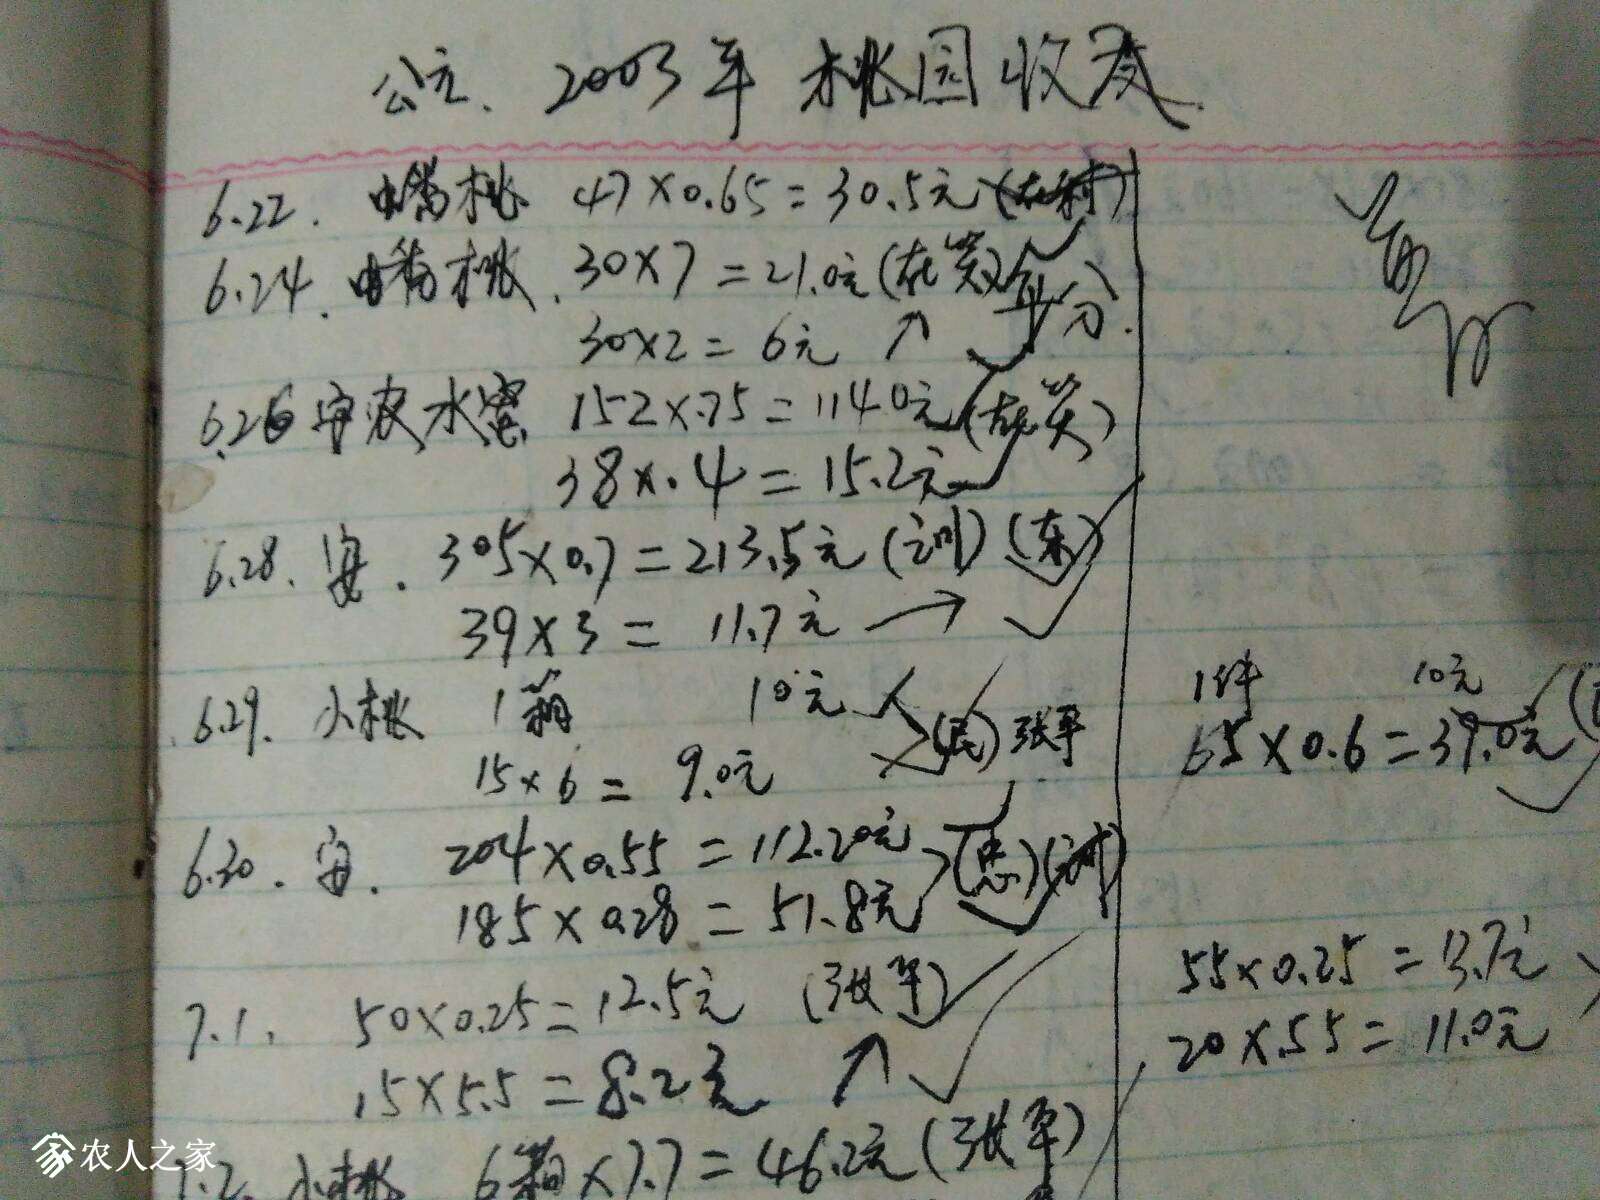 公元、2003年 桃园收支
6.22. 蟠桃 47×0.65=30.5元
6.24. 蟠桃. 30×7=21.0元(在笑) 平分.
30×2=6元 ↗
6.26 安农水蜜 152×.75=114.0元(在笑)
38×.4=15.2元
6.28. 安. 305×0.7=213.5元 (东)
39×3= 11.7元 →
6.29. 小桃 1箱 10元 (民) 张平
1件 10元
15×6= 9.0元
65×0.6=39.0元
6.30. 安. 204×0.55=112.20元 (忠)
185×0.28=51.8元
7.1. 50×0.25=12.5元 (张平)
55×0.25=13.7元
15×5.5=8.2元 ↗
20×.55=11.0元
7.2. 小桃 6箱×7.7=46.2元(张平)
农人之家